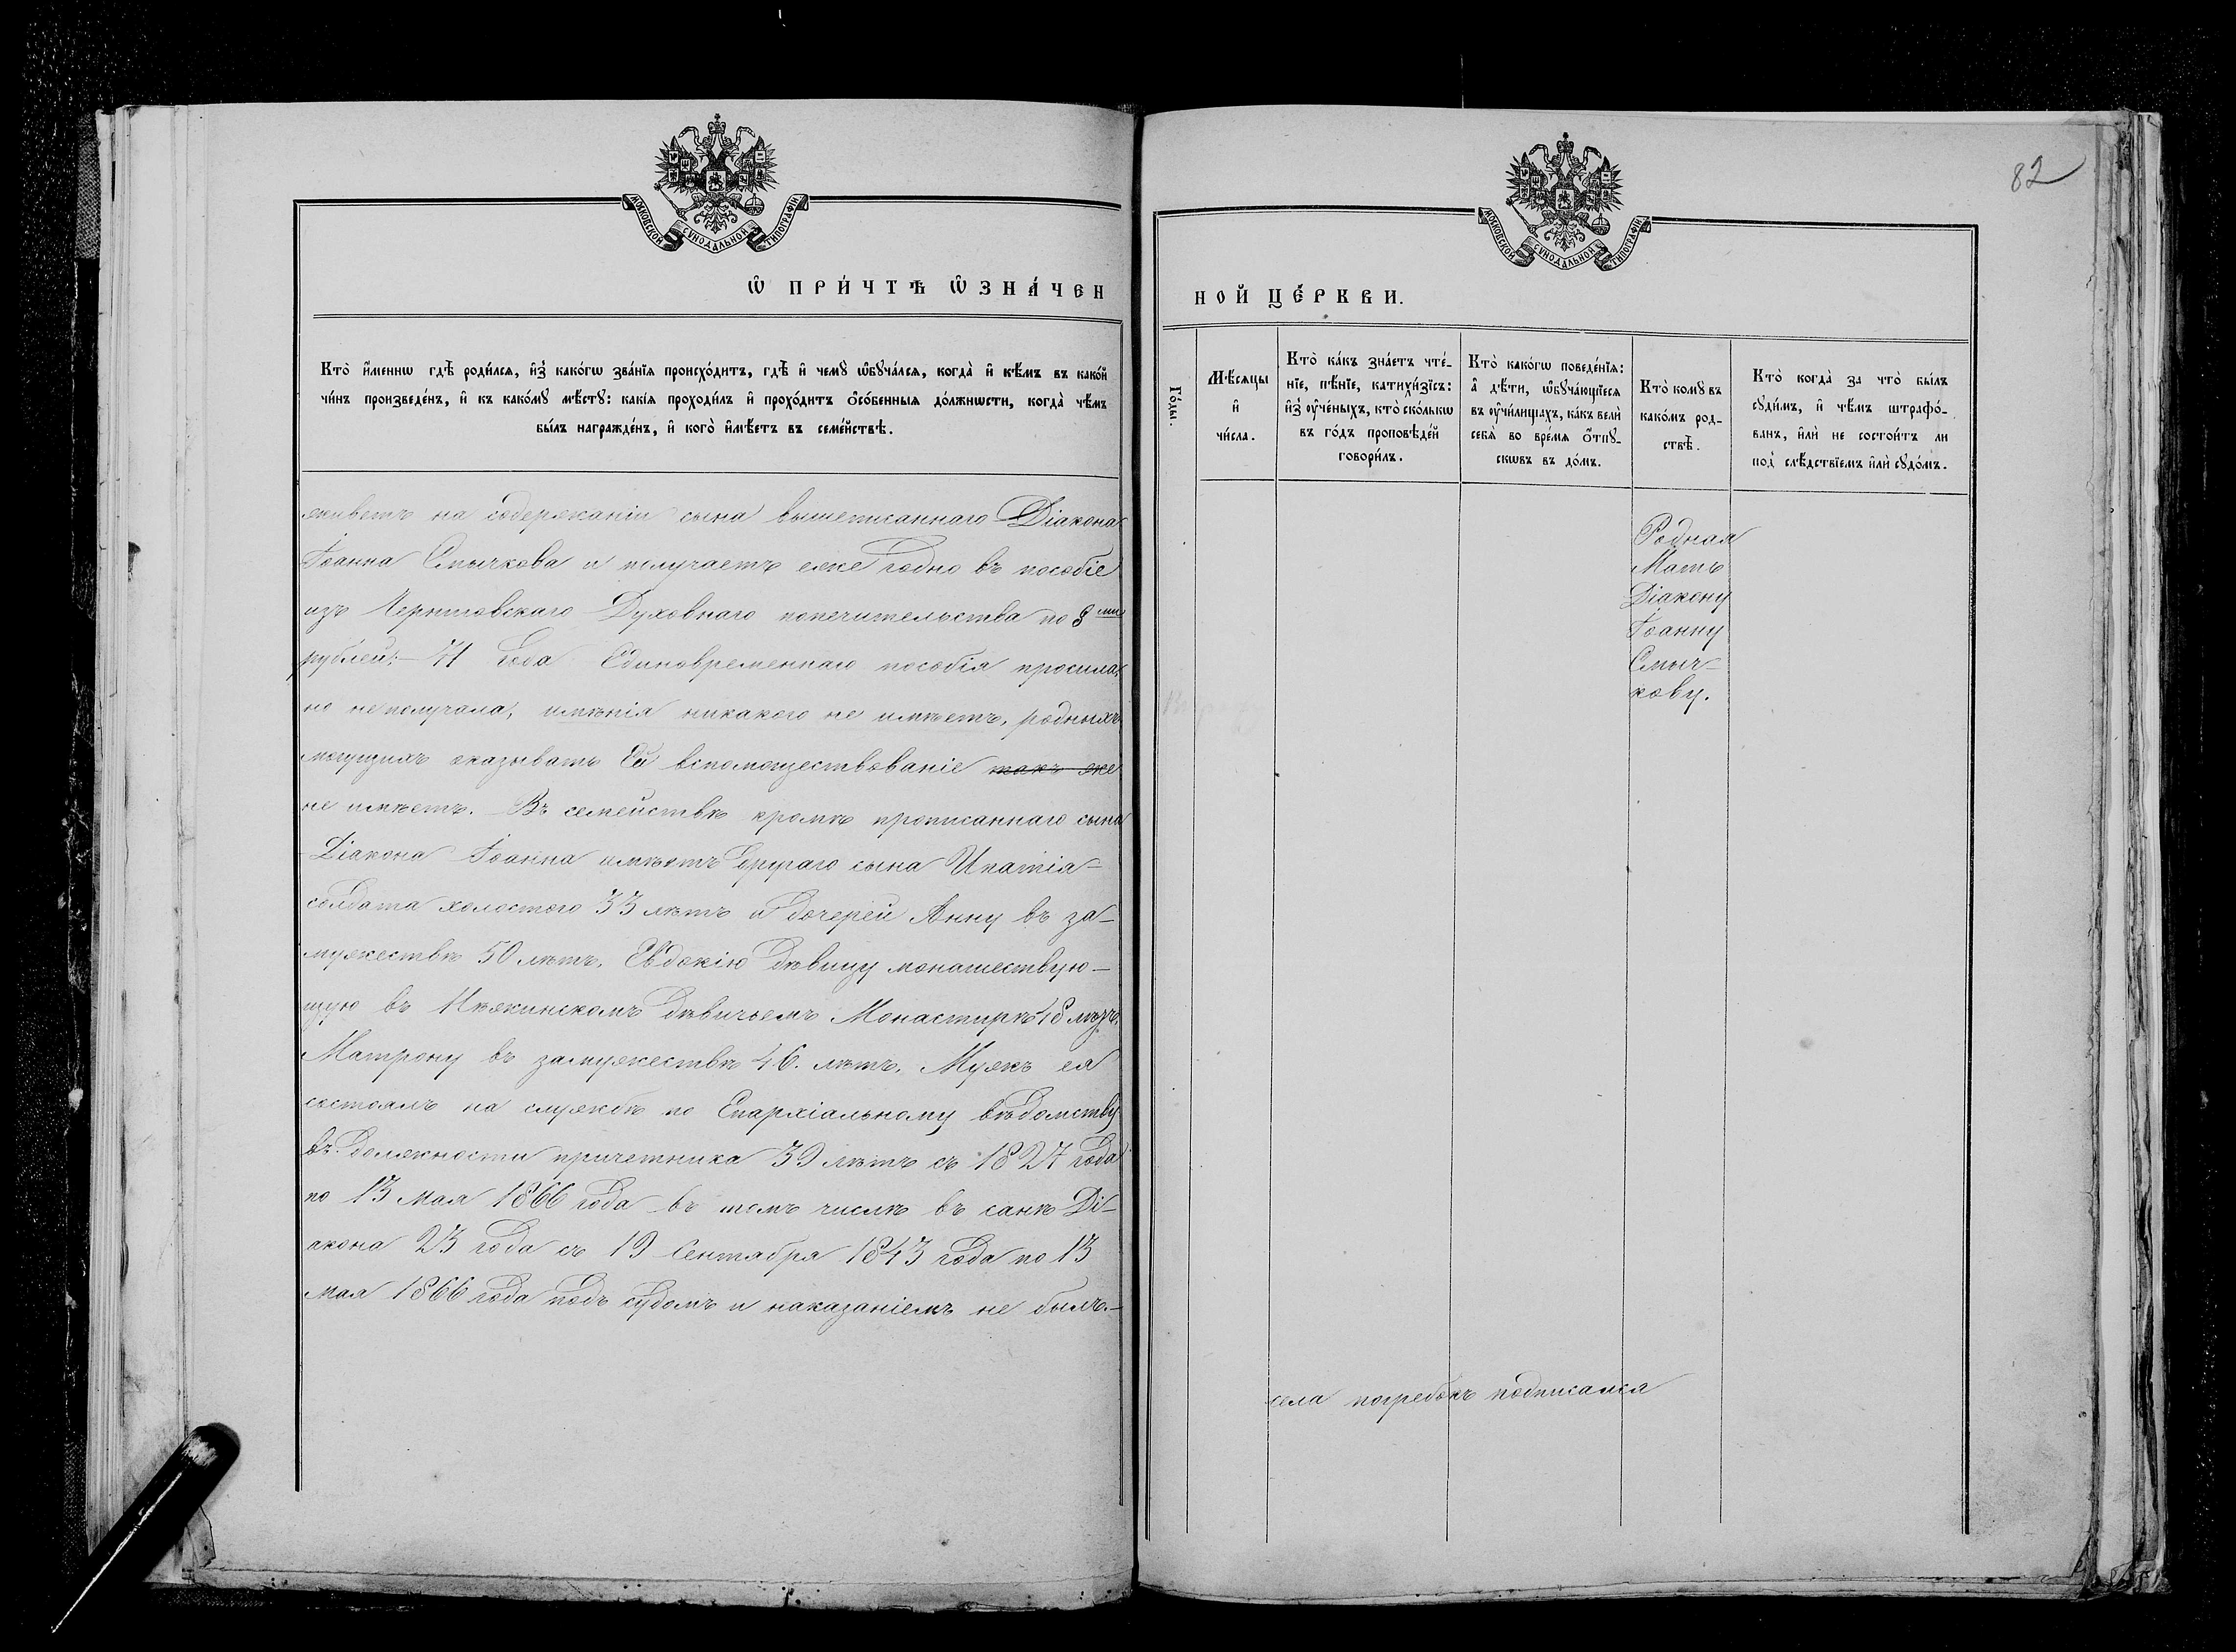 82
МОСКОВСКОЙ СѴНОДАЛЬНОЙ ТИПОГРАФІИ
МОСКОВСКОЙ СѴНОДАЛЬНОЙ ТИПОГРАФІИ
Ѡ ПРИ́ЧТѢ ѠЗНА́ЧЕН
НОЙ ЦЕ́РКВИ.
Кто̀ и҆́меннѡ гдѣ̀ роди́лся, и҆з̾ како́гѡ зва́нїя происхо́дитъ, гдѣ̀ и҆ чемꙋ̀ ѡ҆бꙋча́лся, когда̀ и҆ кѣ́мъ въ како́й
чи́нъ произведе́нъ, и҆ къ како́мꙋ мѣ́стꙋ: какі́я проходи́лъ и҆ прохо́дитъ ѻ҆со́бенныя до́лжнѡсти, когда̀ чѣ́мъ
бы́лъ награжде́нъ, и҆ кого̀ и҆мѣ́етъ въ семе́йствѣ.
живетъ на содержаніи сына вышеписаннаго Діакона
Іоанна Смычкова и получаетъ еже годно въ пособіе
изъ Черниговскаго Духовнаго попечительства по 8 ми
рублей; 71 года Единовременнаго пособія просила,
но не получала, имѣнія никакого не имѣетъ, родныхъ
могущихъ оказывать Ей вспомоществованіе такъ же
не имѣетъ. Въ семействѣ кромѣ прописаннаго сына
Діакона Іоанна имѣетъ другаго сына Ипатія-
солдата холостого 33 лѣтъ и дочерей Анну въ за-
мужествѣ 50 лѣтъ, Евдокію дѣвицу монашествую-
щую въ дѣвичьемъ Монастирѣ 48 лѣтъ,
Матрону въ замужествѣ 46. лѣтъ. Мужъ ея
состоялъ на службѣ по Епархіальному вѣдомству
въ должности причетника 39 лѣтъ съ 1827 года
по 13 мая 1866 года въ томъ числѣ въ санѣ Ді-
акона 23 года съ 19 Сентября 1843 года по 13
мая 1866 года подъ судомъ и наказаніемъ не былъ.-
Го́ды.
Мѣ́сяцы
и҆
чи́сла.
Кто̀ ка́къ зна́етъ чте́-
нїе, пѣ́нїе, катихи́зїсъ:
и҆з̾ ᲂу҆че́ныхъ, кто̀ ско́лькѡ
въ го́дъ проповѣ́дей
говори́лъ.
Кто̀ како́гѡ поведе́нїя:
а҆ дѣ́ти, ѡ҆бꙋча́ющїеся
въ ᲂу҆чи́лищахъ, ка́къ велѝ
себя̀ во вре́мя ѻ҆́тпꙋ-
скѡвъ въ до́мъ.
Кто̀ комꙋ̀ въ
како́мъ род-
ствѣ̀.
Кто̀ когда̀ за что̀ бы́лъ
сꙋди́мъ, и҆ чѣ́мъ штрафо́-
ванъ, и҆лѝ не состои́тъ ли
под̾ слѣ́дствїемъ и҆лѝ сꙋдо́мъ.
Родная
Мать
Діакону
Іоанну
Смыч-
кову.
села погребокъ подписался